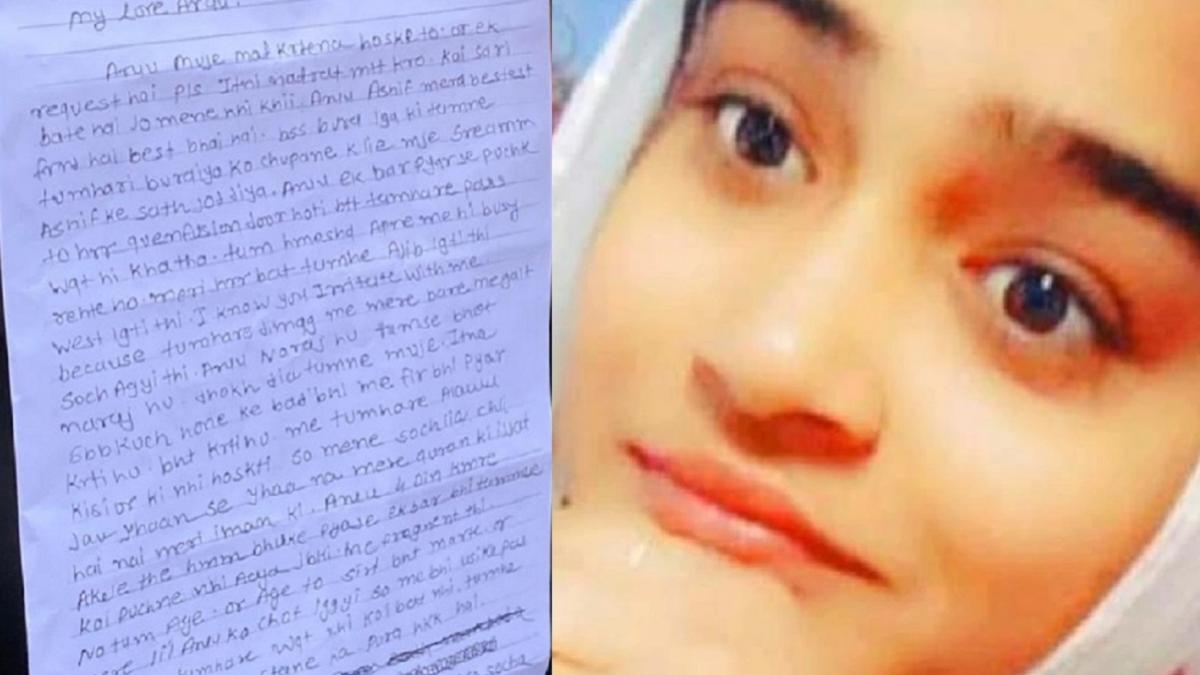 My Love Aruu.
Aruu Muje maf krtena hoske to. or ek
request hai pls Itni nafrat mtt kro. Kai sari
bate hai Jo mene nhi khii. Aruu Ashif mera bestest
frnd hai best bhai hai. bss bura lga ki tumne
tumhari buraiya ko chupane k lie mje
Ashif ke sath jod diya. Aruu ek bar pyar se puchk
to hrr door hoti btt tumhare pass
wqt hi kha tha. tum hmesha Apne me hi busy
rehte ho. meri hrr bat tumhe Ajib lgti thi
west lgti thi. I know you Irritate with me
because tumhare dimag me mere bare me galt
soch Agyi thi. Aruu Naraj hu tumse bhot
naraj hu. dhokh dia tumne muje. Itna
Sbb kuch hone ke bad bhi me fir bhi pyar
krti hu. bht krti hu. me tumhare Alauu
kisi or ki nhi hoskti. so mene soch lia chli
Jau yhaan se yhaa na mere quran ki ijjat
hai nai meri iman ki. Aruu 4 Din kmre
Akele the hmm bhuke pyase ek bar bhi tumse
koi puchne nhi Aaya Jbki me pragnent thi.
Na tum Aye. or Aye to sirf bht mara. or
mere lil Aruu ko chot lggyi so me bhi usike pas
tumhare wqt nhi koi bat nhi. tumhe
na pura hkk hai.
socha